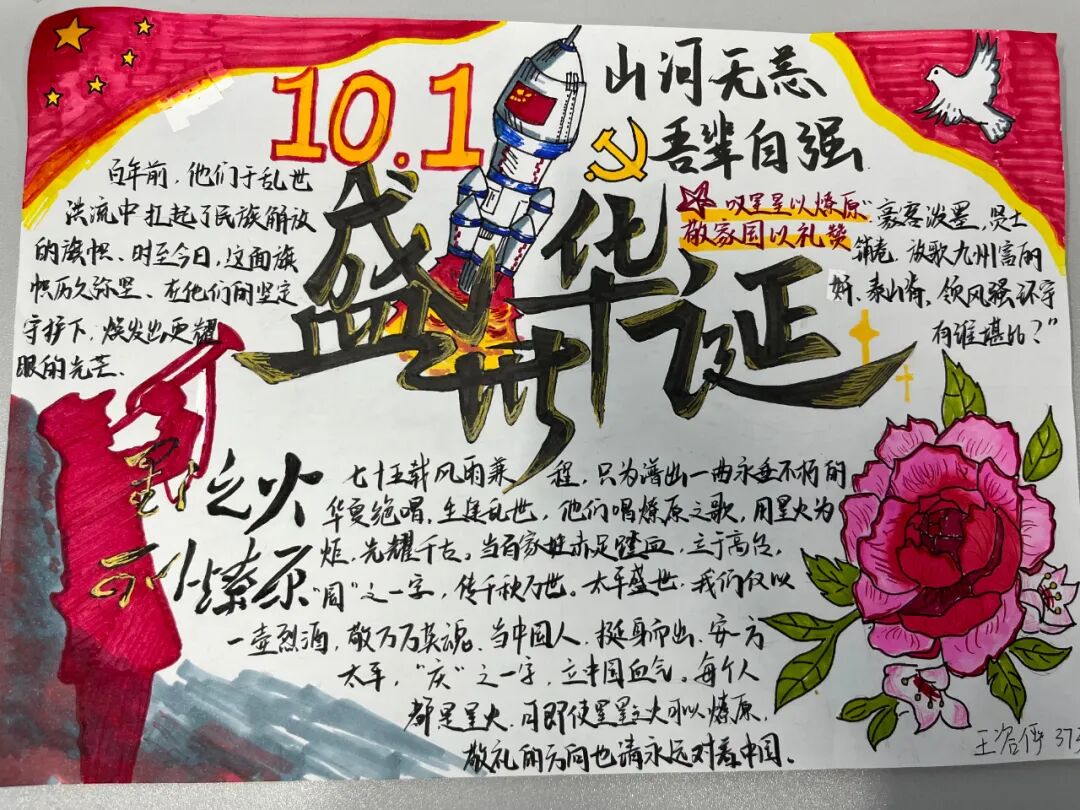 10.1
山河无恙
吾辈自强
盛世华诞
百年前，他们于乱世
洪流中扛起了民族解放
的旗帜、时至今日，这面旗
帜历久弥坚、在他们的坚定
守护下，焕发出更耀
眼的光芒.
以星星以燎原
敬家国以礼赞
"豪客泼墨，贤士
铺卷，放歌九州言雨
妍、泰山脊，领风强，环宇
有谁堪比？"
星星之火
可以燎原
七十五载风雨兼程，只为谱出一曲永垂不朽的
华夏绝唱，生逢乱世，他们唱燎原之歌，用星火为
炬，光耀千古。当百家姓赤足踏血，立于高台，
"国"之一字，传千秋万世。太平盛世，我们仅以
一壶烈酒，敬万万英魂。当中国人，挺身而出，安一方
太平，"庆"之一字，立中国血气。每个人
都是星火，可即使星星之火可以燎原，
敬礼的方向也请永远对着中国。
王